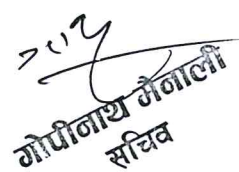 गोपीनाथ मैनाली
सचिव